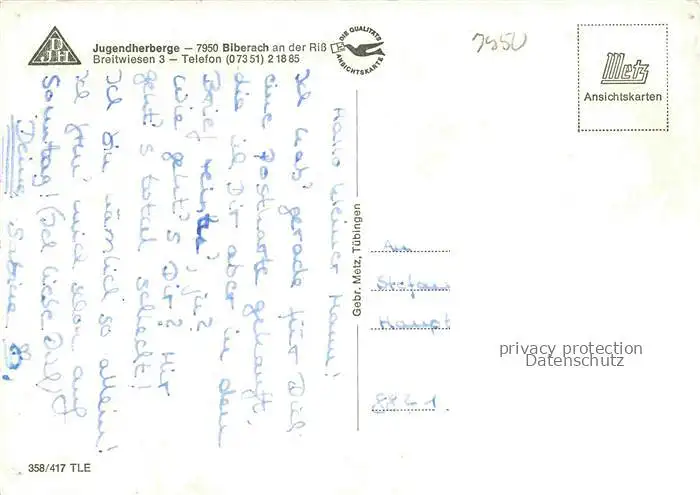 DJH
Jugendherberge – 7950 Biberach an der Riß
Breitwiesen 3 – Telefon (07351) 21885
DIE QUALITÄTS
ANSICHTSKARTE
7950
Metz
Ansichtskarten
Hallo kleiner Mann!
Ich hab' gerade für Dich
eine Postkarte gekauft,
die ich Dir aber in den
Brief, ja?
Wie geht's Dir? Mir
geht's total schlecht!
Ich bin nämlich so allein!
Ich freu' mich schon auf
Sonntag! (Ich liebe Dich)
Deine Sabine
Gebr. Metz, Tübingen
An
Stefan
Haupt
privacy protection
Datenschutz
358/417 TLE